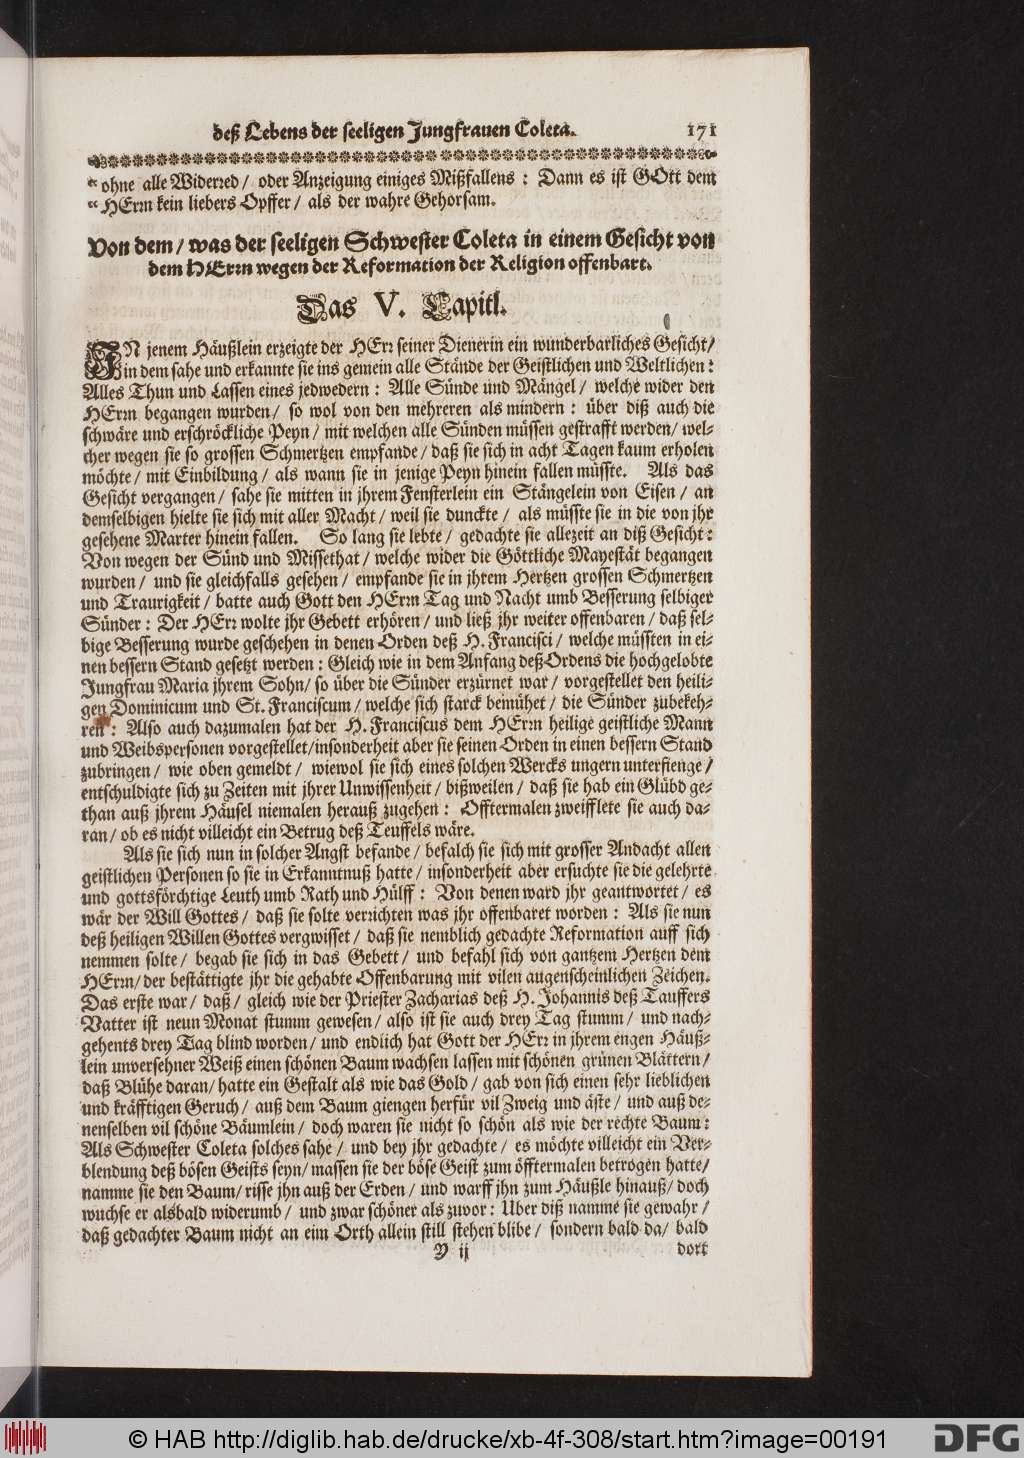 deß Lebens der seeligen Jungfrauen Coleta. 171
“ ohne alle Widerred / oder Anzeigung einiges Mißfallens : Dann es ist GOtt dem
“ HErrn kein liebers Opffer / als der wahre Gehorsam.
Von dem / was der seeligen Schwester Coleta in einem Gesicht von
dem HErrn wegen der Reformation der Religion offenbart.
Das V. Capitl.
IN jenem Häußlein erzeigte der HErr seiner Dienerin ein wunderbarliches Gesicht /
in dem sahe und erkannte sie ins gemein alle Stände der Geistlichen und Weltlichen :
Alles Thun und Lassen eines jedwedern : Alle Sünde und Mängel / welche wider den
HErrn begangen wurden / so wol von den mehreren als mindern : über diß auch die
schwäre und erschröckliche Peyn / mit welchen alle Sünden müssen gestrafft werden / wel-
cher wegen sie so grossen Schmertzen empfande / daß sie sich in acht Tagen kaum erholen
möchte / mit Einbildung / als wann sie in jenige Peyn hinein fallen müsste. Als das
Gesicht vergangen / sahe sie mitten in jhrem Fensterlein ein Stängelein von Eisen / an
demselbigen hielte sie sich mit aller Macht / weil sie dunckte / als müsste sie in die von jhr
gesehene Marter hinein fallen. So lang sie lebte / gedachte sie allezeit an diß Gesicht :
Von wegen der Sünd und Missethat / welche wider die Göttliche Mayestät begangen
wurden / und sie gleichfalls gesehen / empfande sie in jhrem Hertzen grossen Schmertzen
und Traurigkeit / batte auch Gott den HErrn Tag und Nacht umb Besserung selbiger
Sünder : Der HErr wolte jhr Gebett erhören / und ließ jhr weiter offenbaren / daß sel-
bige Besserung wurde geschehen in denen Orden deß H. Francisci / welche müssten in ei-
nen bessern Stand gesetzt werden : Gleich wie in dem Anfang deß Ordens die hochgelobte
Jungfrau Maria jhrem Sohn / so über die Sünder erzürnet war / vorgestellet den heili-
gen Dominicum und St. Franciscum / welche sich starck bemühet / die Sünder zubekeh-
ren : Also auch dazumalen hat der H. Franciscus dem HErrn heilige geistliche Mann
und Weibspersonen vorgestellet / insonderheit aber sie seinen Orden in einen bessern Stand
zubringen / wie oben gemeldt / wiewol sie sich eines solchen Wercks ungern unterfienge /
entschuldigte sich zu Zeiten mit jhrer Unwissenheit / bißweilen / daß sie hab ein Glübd ge-
than auß jhrem Häusel niemalen herauß zugehen : Offtermalen zweifflete sie auch da-
ran / ob es nicht villeicht ein Betrug deß Teuffels wäre.
Als sie sich nun in solcher Angst befande / befalch sie sich mit grosser Andacht allen
geistlichen Personen so sie in Erkanntnuß hatte / insonderheit aber ersuchte sie die gelehrte
und gottsförchtige Leuth umb Rath und Hülff : Von denen ward jhr geantwortet / es
wär der Will Gottes / daß sie solte verrichten was jhr offenbaret worden : Als sie nun
deß heiligen Willen Gottes vergwisset / daß sie nemblich gedachte Reformation auff sich
nemmen solte / begab sie sich in das Gebett / und befahl sich von gantzem Hertzen dem
HErrn / der bestättigte jhr die gehabte Offenbarung mit vilen augenscheinlichen Zeichen.
Das erste war / daß / gleich wie der Priester Zacharias deß H. Johannis deß Tauffers
Vatter ist neun Monat stumm gewesen / also ist sie auch drey Tag stumm / und nach-
gehents drey Tag blind worden / und endlich hat Gott der HErr in jhrem engen Häuß-
lein unversehner Weiß einen schönen Baum wachsen lassen mit schönen grünen Blättern /
daß Blühe daran / hatte ein Gestalt als wie das Gold / gab von sich einen sehr lieblichen
und kräfftigen Geruch / auß dem Baum giengen herfür vil Zweig und äste / und auß de-
nenselben vil schöne Bäumlein / doch waren sie nicht so schön als wie der rechte Baum :
Als Schwester Coleta solches sahe / und bey jhr gedachte / es möchte villeicht ein Ver-
blendung deß bösen Geists seyn / massen sie der böse Geist zum öfftermalen betrogen hatte /
namme sie den Baum / risse jhn auß der Erden / und warff jhn zum Häußle hinauß / doch
wuchse er alsbald widerumb / und zwar schöner als zuvor : Uber diß namme sie gewahr /
daß gedachter Baum nicht an eim Orth allein still stehen blibe / sondern bald da / bald
Y ij dort
© HAB http://diglib.hab.de/drucke/xb-4f-308/start.htm?image=00191
DFG